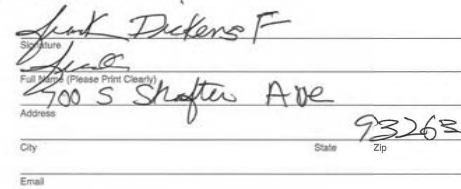 Frank Dickens F
Signature
Full Name (Please Print Clearly)
700 S Shafter Ave
Address
93263
City State Zip
Email